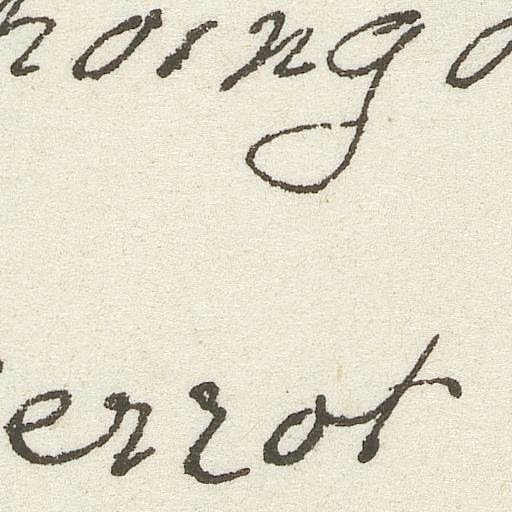 hoingo
errot